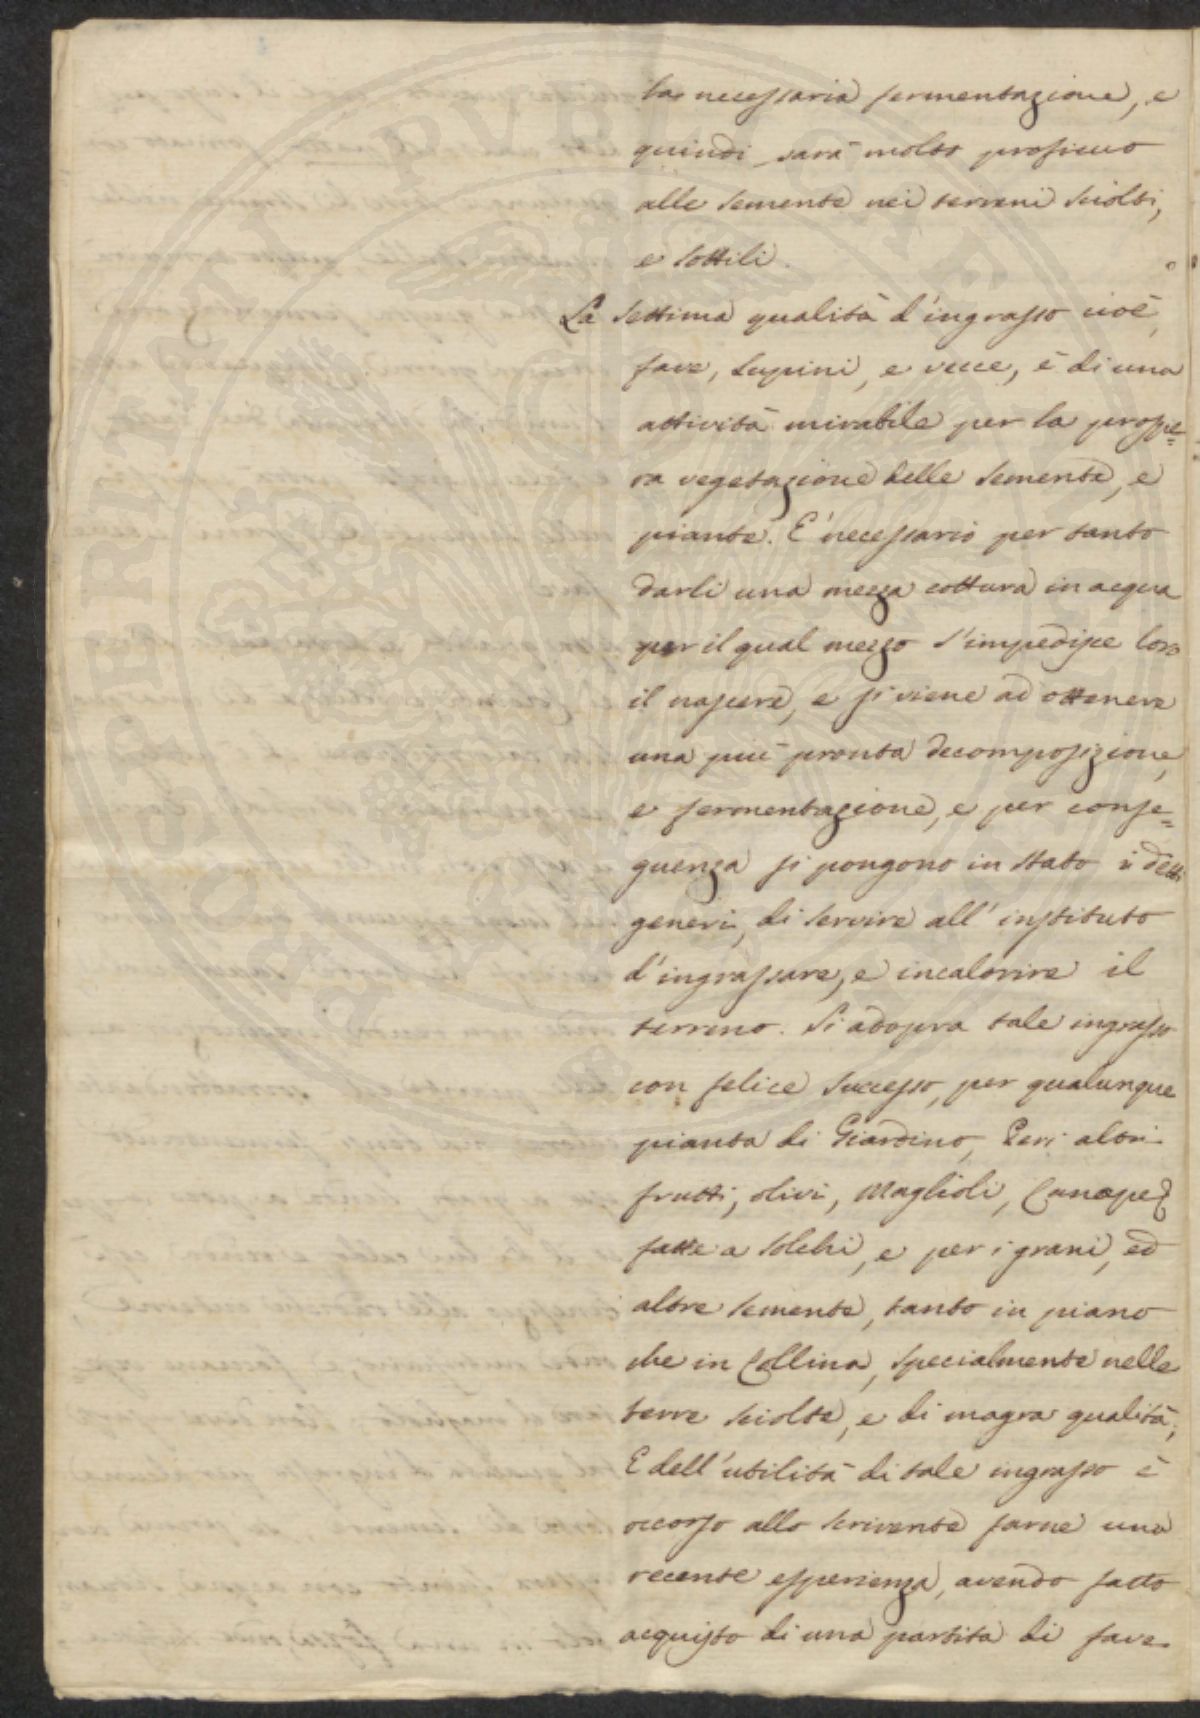 la necessaria fermentazione, e
quindi sarà molto proficuo
alle semente nei terreni sciolti,
e sottili.
La settima qualità d'ingrasso cioè,
fave, lupini, e vecce, è di una
attività mirabile per la prospe=
ra vegetazione delle semente, e
piante. E' necessario per tanto
darli una mezza cottura in acqua
per il qual mezzo s'impedisce loro
il nascere, e si viene ad ottenere
una più pronta decomposizione,
e fermentazione, e per conse=
guenza si pongono in stato i detti
generi, di servire all'instituto
d'ingrassare, e incalorire il
terreno. Si adopra tale ingrasso
con felice successo, per qualunque
pianta di Giardino, Peri altri
frutti, olivi, Maglioli, Canape
fatte a solchi, e per i grani, ed
altre semente, tanto in piano
che in Collina, specialmente nelle
terre sciolte, e di magra qualità;
E dell'utilità di tale ingrasso è
occorso allo scrivente farne una
recente esperienza, avendo fatto
acquisto di una partita di fave